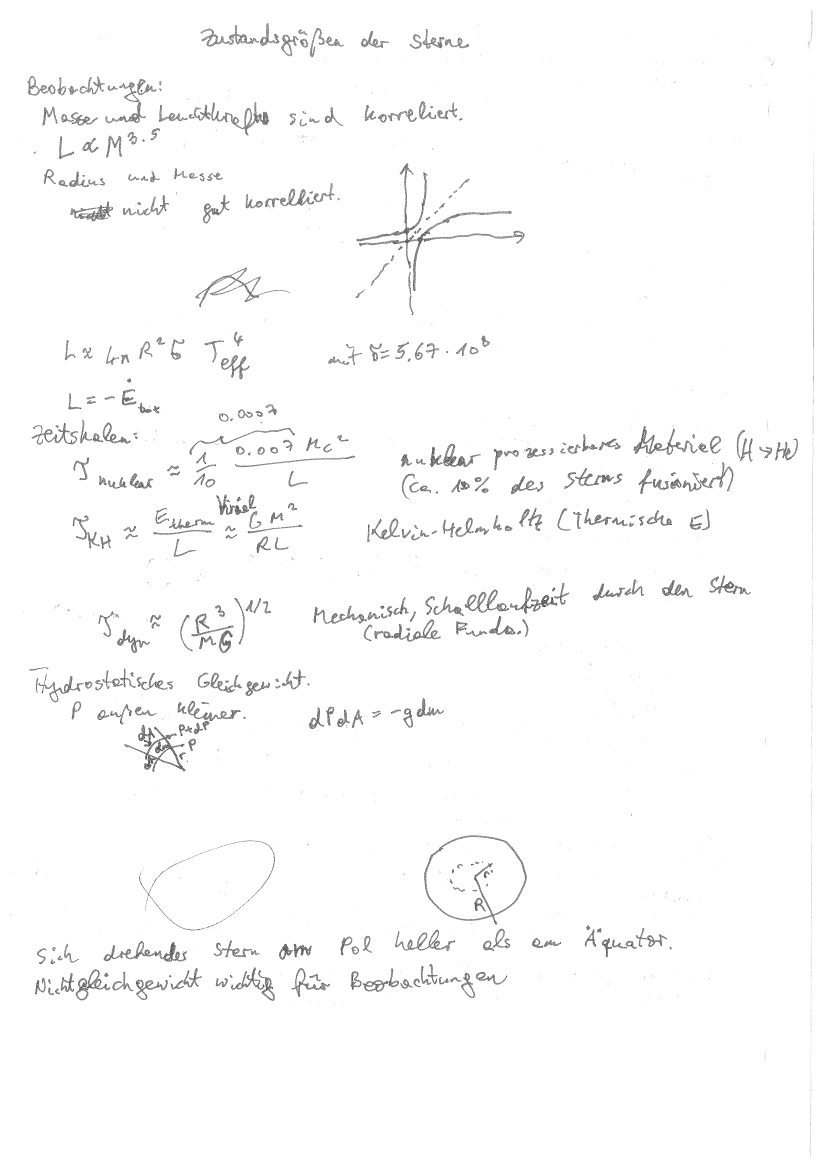 Zustandsgrößen der Sterne
Beobachtungen:
Masse und Leuchtkraft sind korreliert.
L ∝ M^3.5
Radius und Masse
nicht gut korrelliert.
L ≈ 4π R² σ T_eff^4 mit σ = 5.67 · 10^8
L = - Ė_tot
Zeitskalen:
0.0007
τ_nuklear ≈ 1/10 0.007 Mc²/L nuklear prozessierbares Material (H → He)
(ca. 10% des Sterns fusioniert)
τ_KH ≈ E_therm/L ≈ GM²/RL Kelvin-Helmholtz (Thermische E)
Virial
τ_dyn ≈ (R³/MG)^1/2 Mechanisch, Schalllaufzeit durch den Stern
(radiale Funda.)
Hydrostatisches Gleichgewicht.
P außen kleiner. dPdA = -gdm
dA P+dP
dm P
dr r
r
R
Sich drehendes Stern am Pol heller als am Äquator.
Nichtgleichgewicht wichtig für Beobachtungen